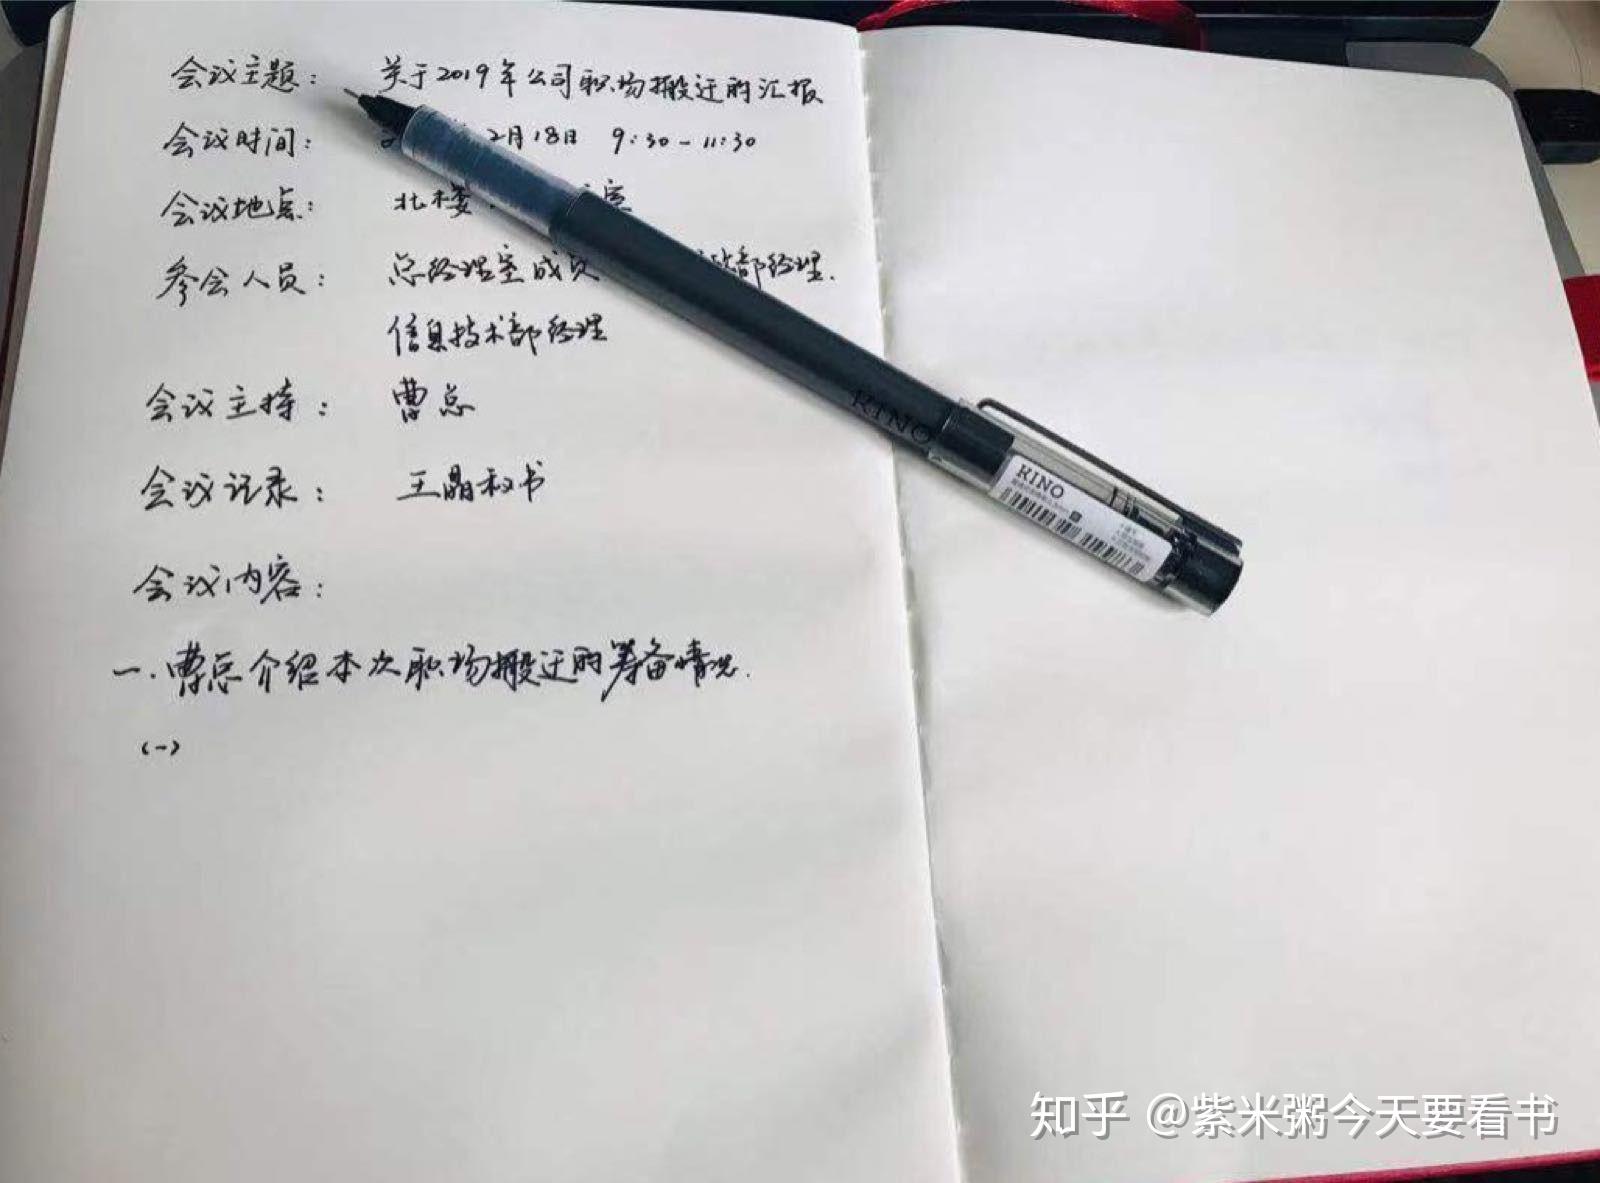 会议主题： 关于2019年公司职场搬迁的汇报
会议时间： 2月18日 9:30-11:30
会议地点： 北楼 室
参会人员： 总经理室成员 部经理.
信息技术部经理
会议主持： 曹总
会议记录： 王晶秘书
会议内容：
一.曹总介绍本次职场搬迁的筹备情况.
(一)
KINO
KINO
知乎 @紫米粥今天要看书